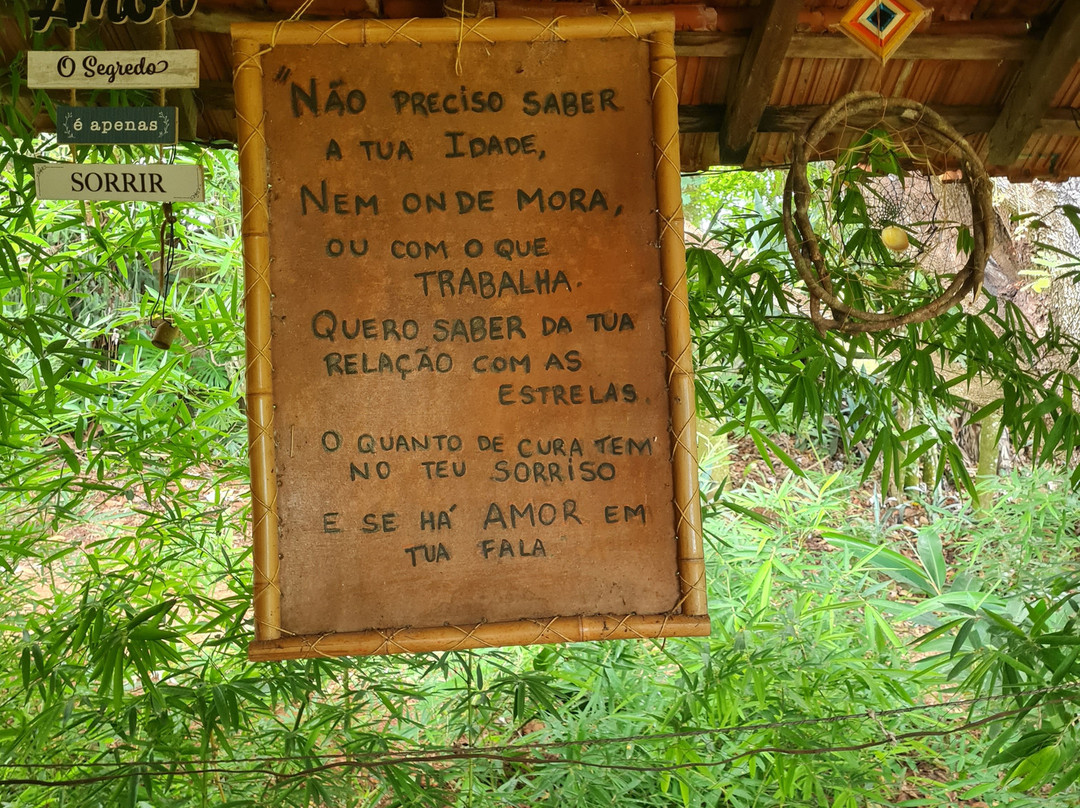 Amor
O Segredo
é apenas
SORRIR
"NÃO PRECISO SABER
A TUA IDADE,
NEM ONDE MORA,
OU COM O QUE
TRABALHA.
QUERO SABER DA TUA
RELAÇÃO COM AS
ESTRELAS.
O QUANTO DE CURA TEM
NO TEU SORRISO
E SE HÁ AMOR EM
TUA FALA